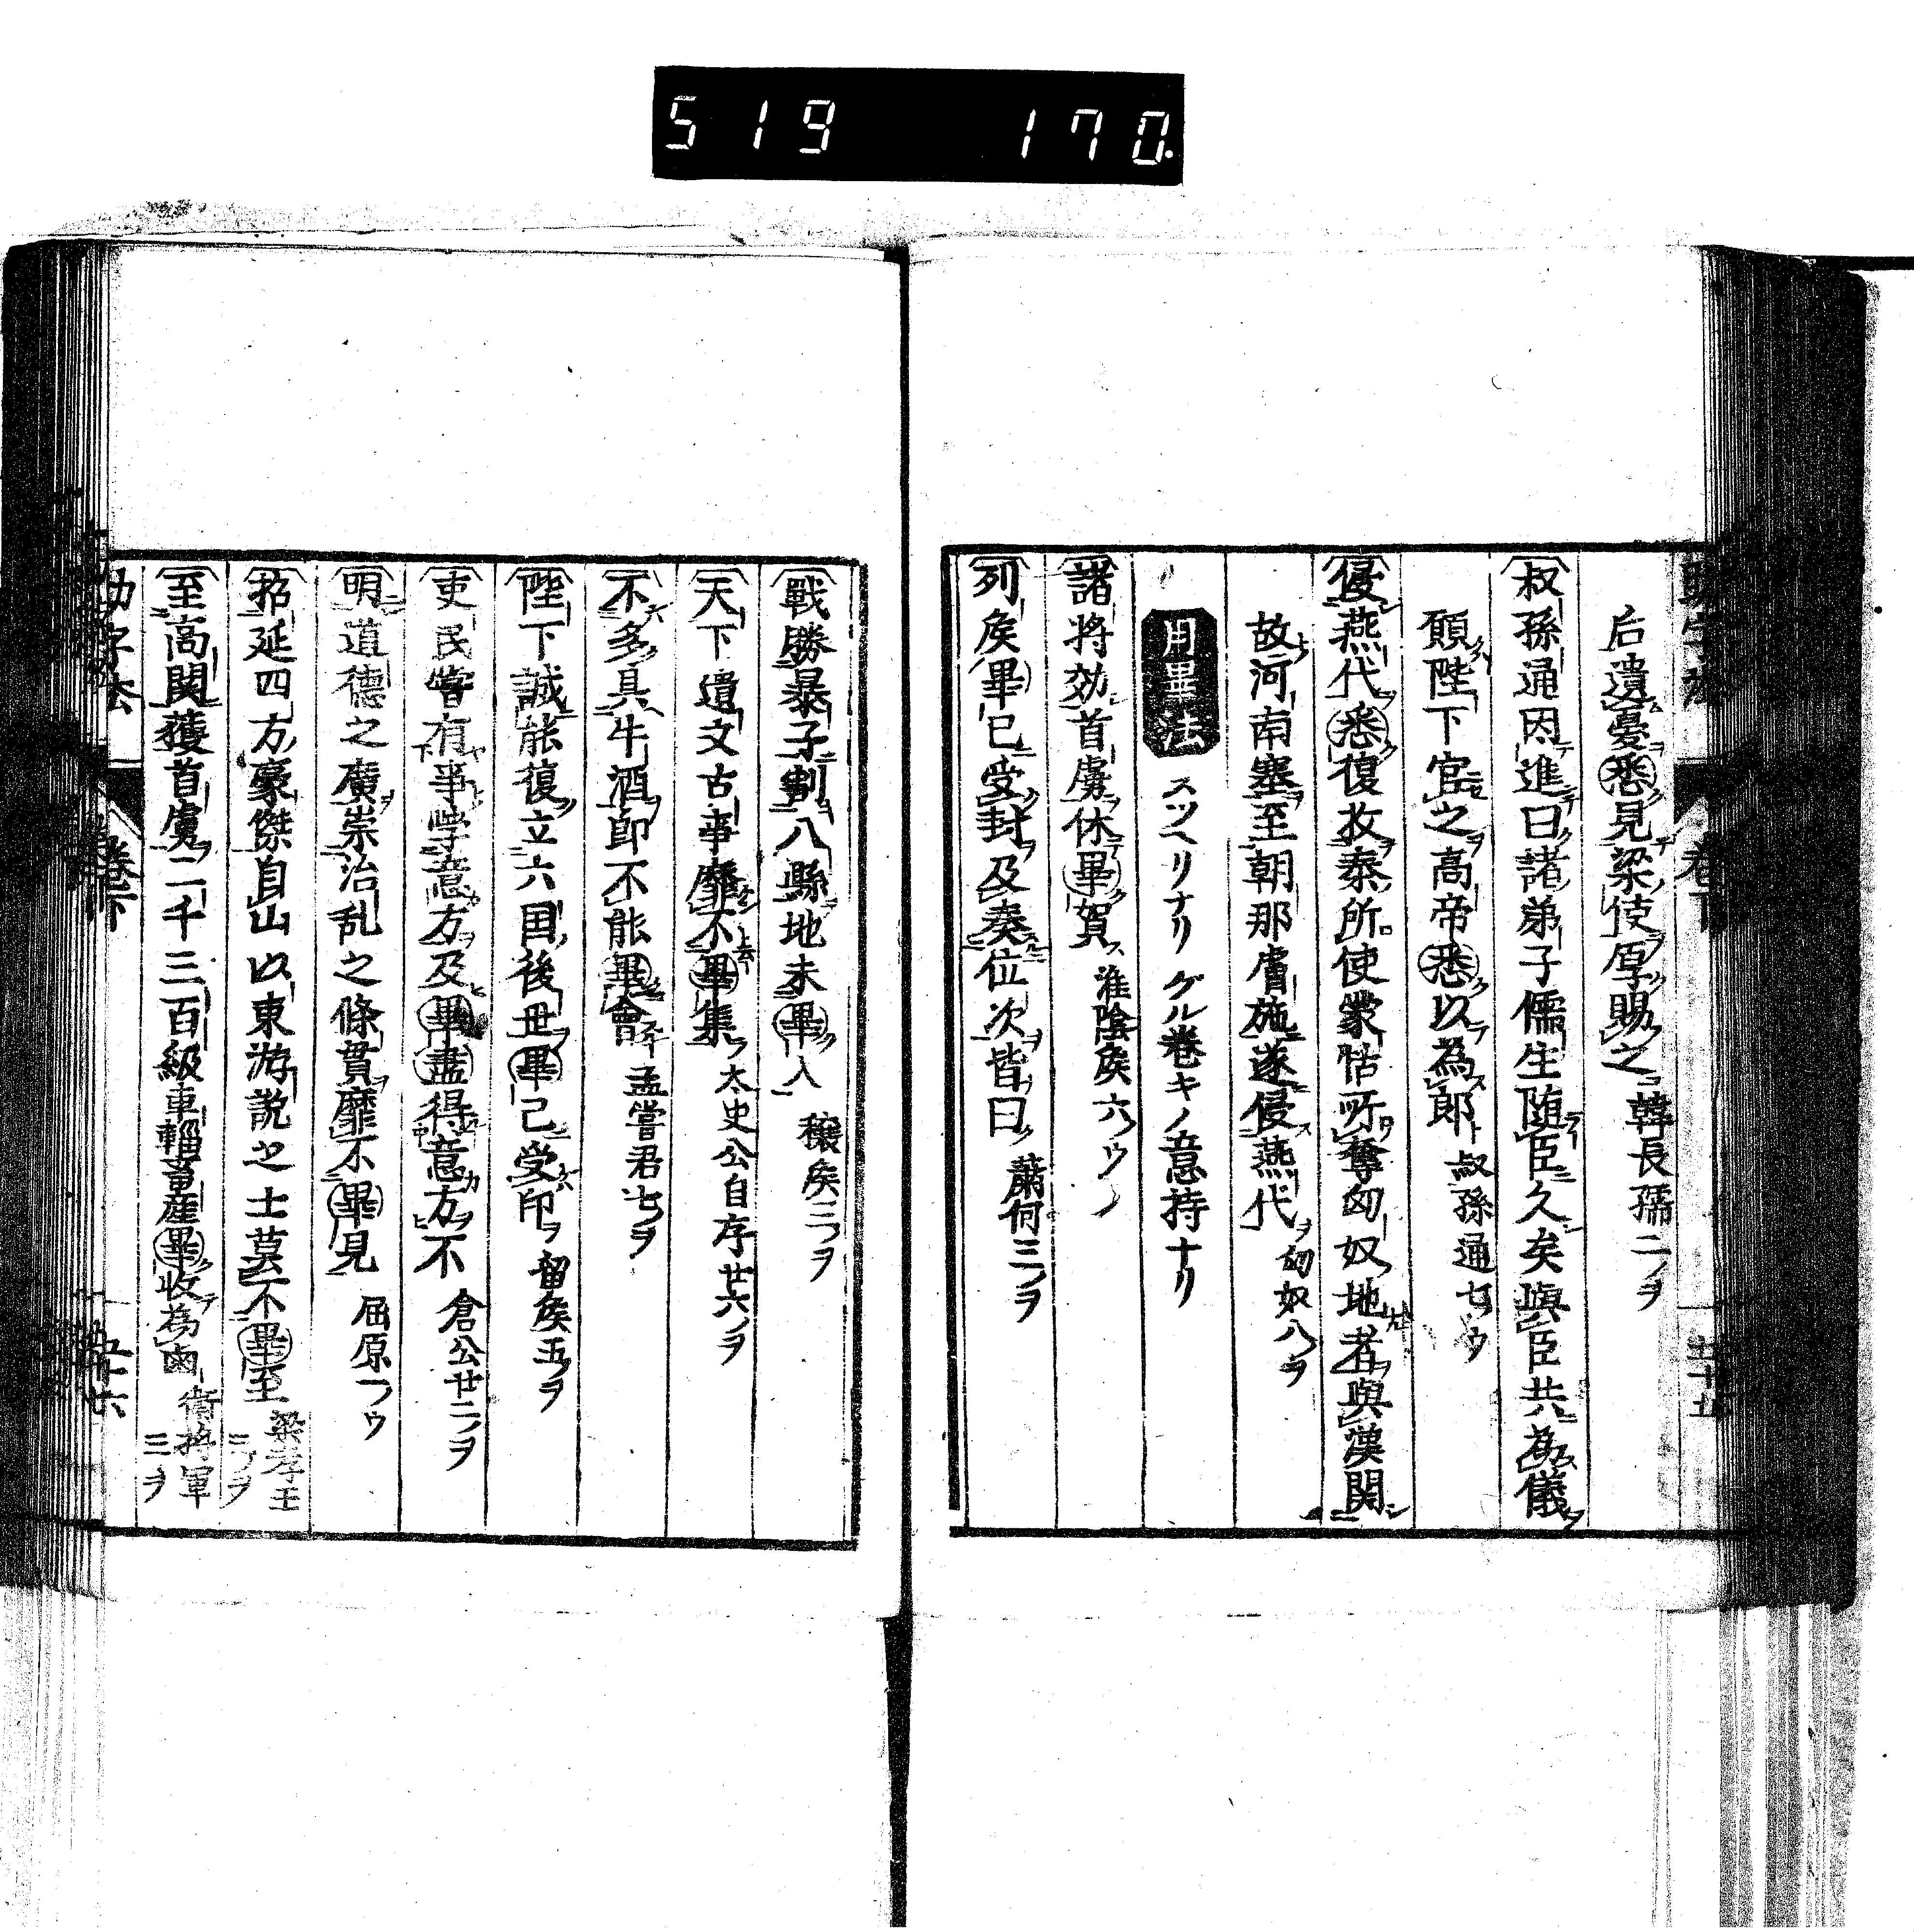 519 170.
后遺憂㊀悉見梁使厚賜之 韓長孺二ノヲ
叔孫通因進曰諸弟子儒生随臣久矣與臣共為儀
願陛下官之高帝悉以為郎 叔孫通七ノウ
侵燕代悉復收秦所使蒙恬所奪匈奴地者與漢関
故河南塞至朝那膚施遂侵燕代 匈奴八ノヲ
用畢法 スツヘリナリ グル巻キノ意持ナリ
諸将効首虜休畢賀 淮陰矦六ノウ
列矦畢已受封及奏位次皆曰 蕭何三ノヲ
戰勝暴子割八縣地未畢入 穰矦三ノヲ
天下遺文古事靡不畢集 太史公自序廿六ノヲ
不多具牛酒即不能畢會 孟嘗君七ノヲ
陛下誠能復立六国後世畢已受印 留矦五ノヲ
吏民嘗有事学意方及畢盡得意方不 倉公廿二ノヲ
明道德之廣崇治乱之條貫靡不畢見 屈原一ノウ
招延四方豪傑自山以東游説之士莫不畢至 梁孝王二ノヲ
至高関獲首虜二千三百級車輜畜産畢收為鹵 衛将軍三ノヲ
巻下 五十六